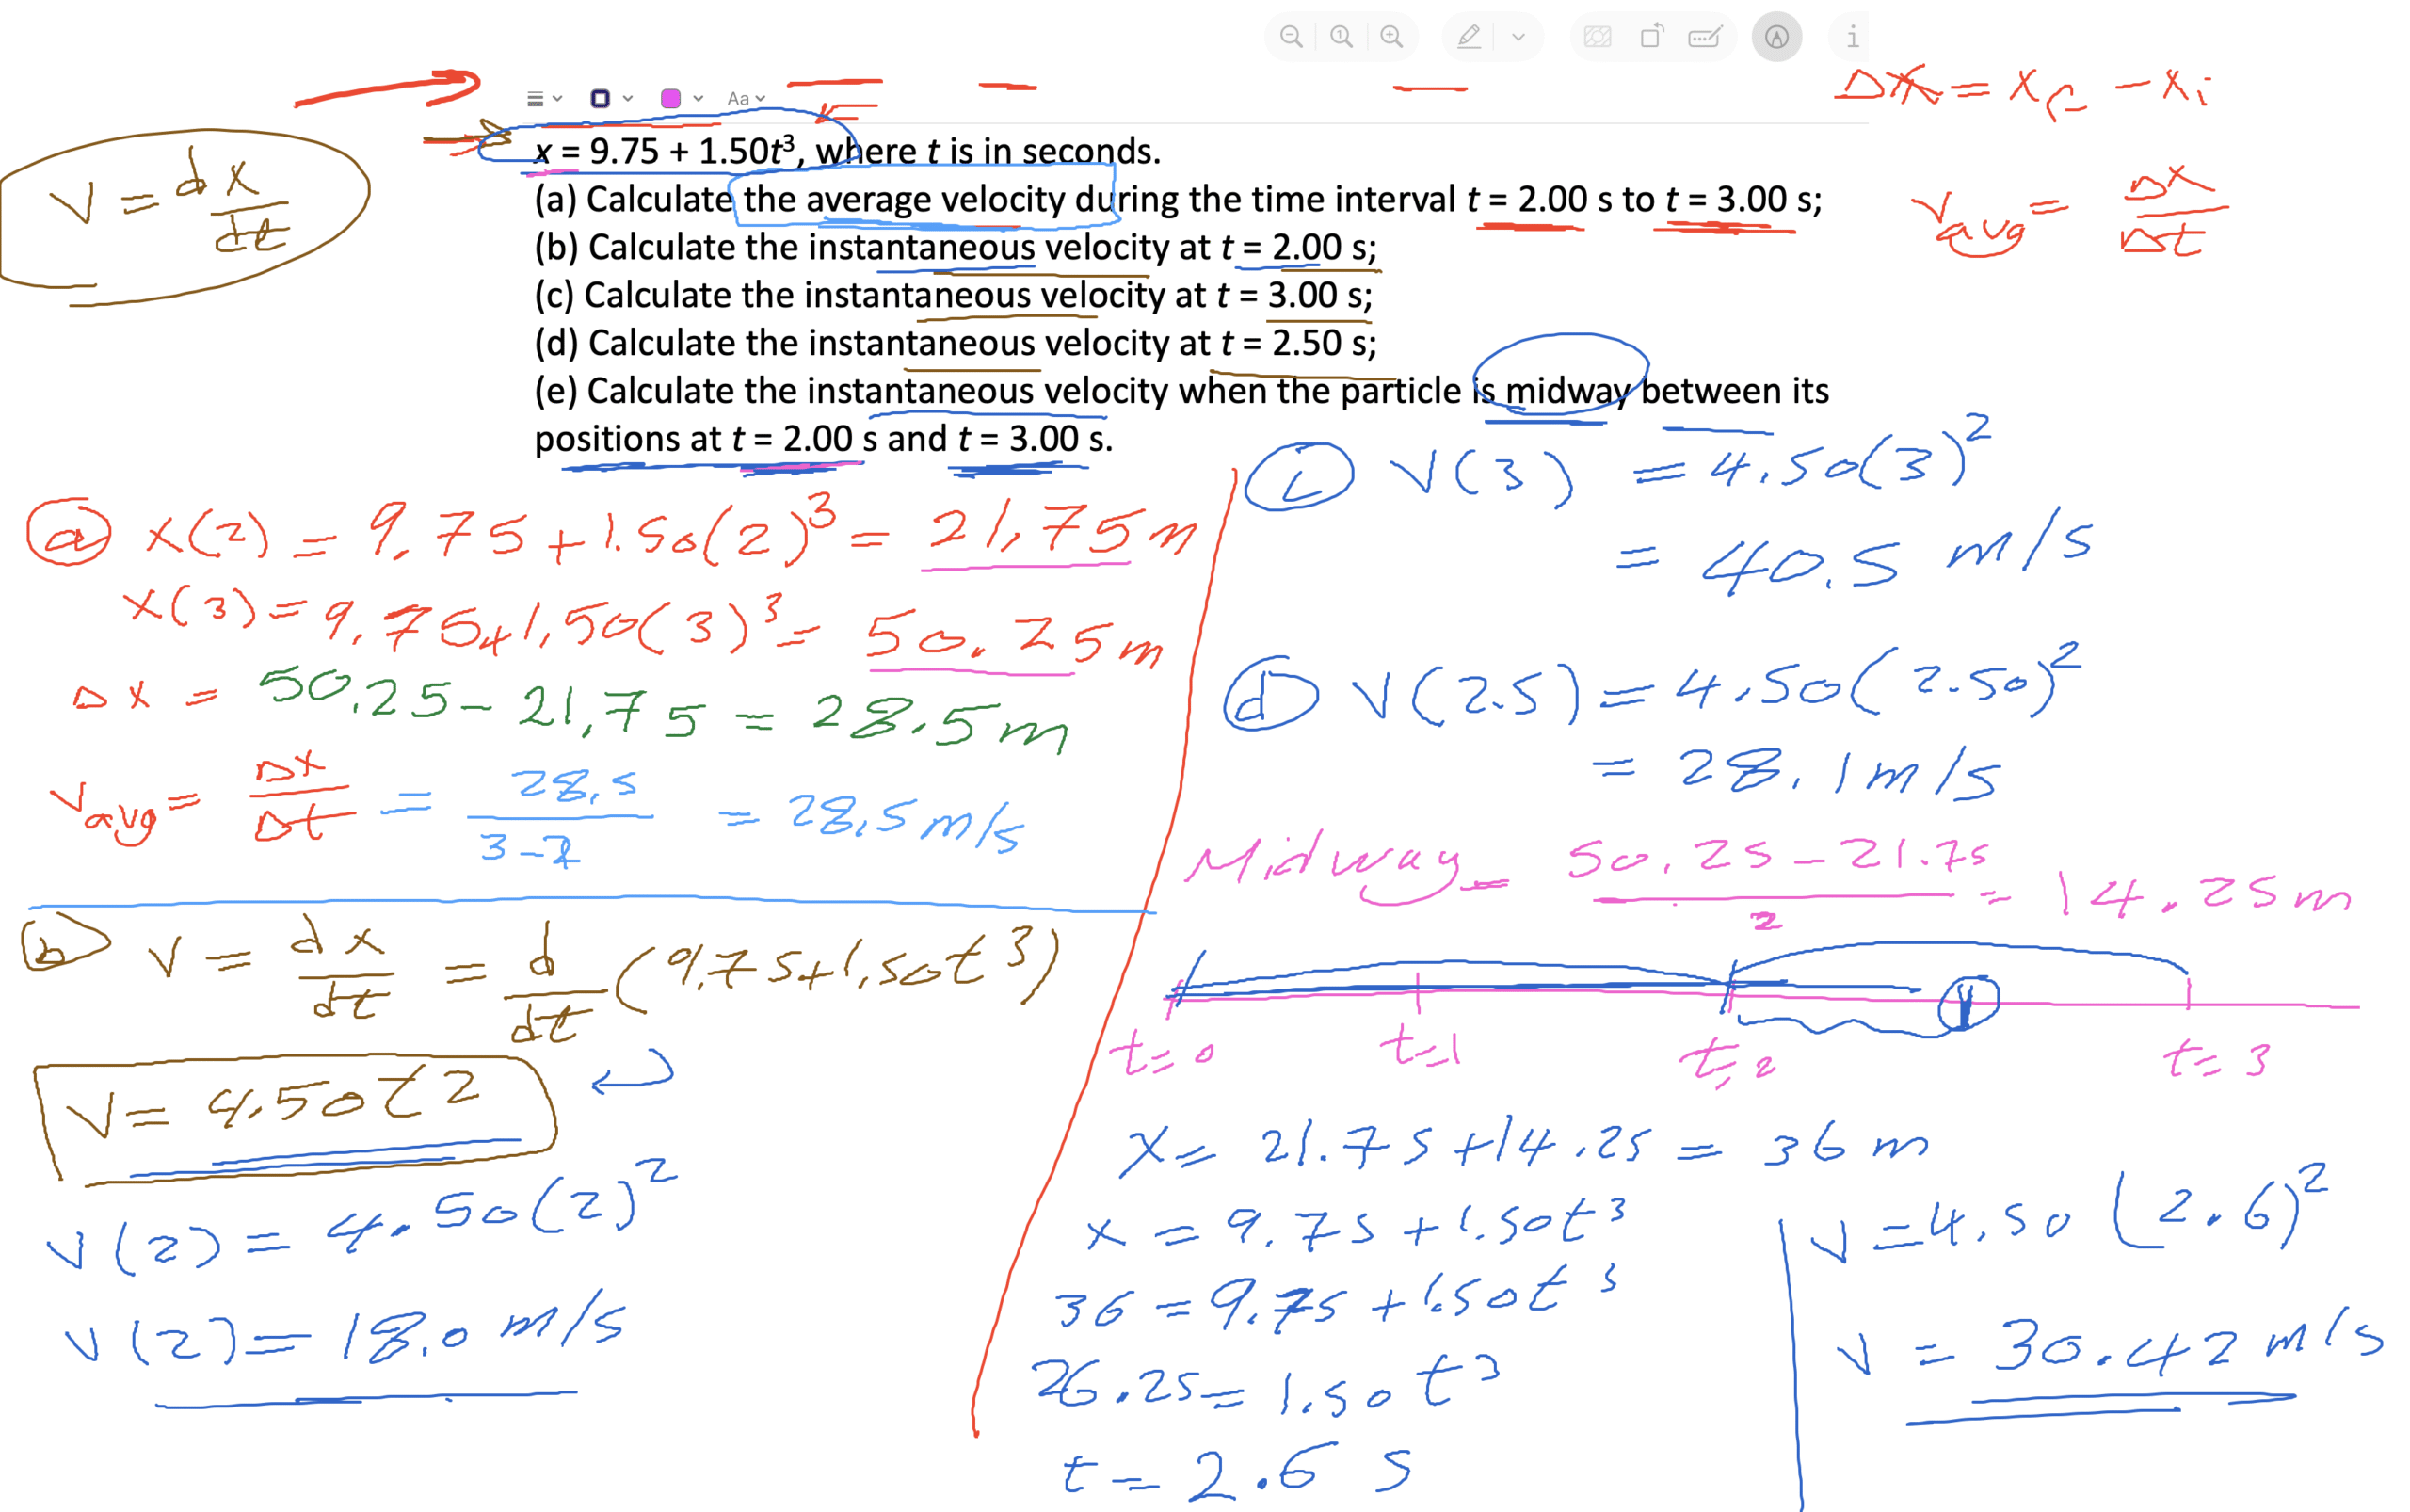 Aa
Δx = x_f - x_i
x = 9.75 + 1.50t³, where t is in seconds.
(a) Calculate the average velocity during the time interval t = 2.00 s to t = 3.00 s;
(b) Calculate the instantaneous velocity at t = 2.00 s;
(c) Calculate the instantaneous velocity at t = 3.00 s;
(d) Calculate the instantaneous velocity at t = 2.50 s;
(e) Calculate the instantaneous velocity when the particle is midway between its
positions at t = 2.00 s and t = 3.00 s.
v = dx/dt
v_avg = Δx/Δt
(a) x(2) = 9.75 + 1.50(2)³ = 21.75 m
x(3) = 9.75 + 1.50(3)³ = 50.25 m
Δx = 50.25 - 21.75 = 28.5 m
v_avg = Δx/Δt = 28.5/(3-2) = 28.5 m/s
(b) v = dx/dt = d/dt (9.75 + 1.50t³)
v = 4.50t²
v(2) = 4.50(2)²
v(2) = 18.0 m/s
(c) v(3) = 4.50(3)²
= 40.5 m/s
(d) v(2.5) = 4.50(2.50)²
= 28.1 m/s
Midway = (50.25 - 21.75)/2 = 14.25 m
t=0 t=1 t=2 t=3
x = 21.75 + 14.25 = 36 m
x = 9.75 + 1.50t³
36 = 9.75 + 1.50t³
26.25 = 1.50t³
t = 2.6 s
v = 4.50(2.6)²
v = 30.42 m/s